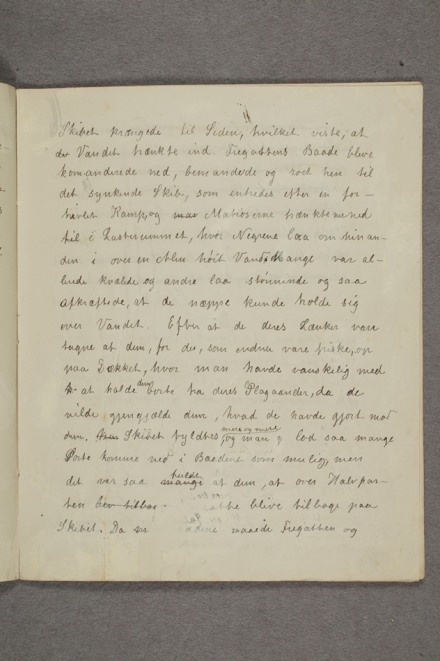 Skibet krængede til Siden, hvilket viste, at
der Vandet trænkte ind. Fregattens Baade bleve
komanderede ned, bemandede og roed hen til
det synkende Skib, som entredes efter en for-
tvivlet Kamp, og Matroserne trænkte ned
til i Lasterummet, hvor Negrene laa om hinan-
den i over en Alen høit Vand. Mange var al-
lerede kvalde og andre laa stønnende og saa
afkræftede, at de næppe kunde holde sig
over Vandet. Efter at de deres Lænker vare
tagne af dem, for de, som endnu vare friske, op
paa Dækket, hvor man havde vanskelig med
at holde dem borte fra deres Plageaander, da de
vilde gjengjælde dem, hvad de havde gjort mod
dem, Skibet fyldtes mere og mere og man lod saa mange
Porte komme ned i Baadene som mulig, men
det var saa fuldt mange af dem, at over Halvpar-
ten blev tilbage. atte blive tilbage paa
Skibet. Da maaede Fregatten og